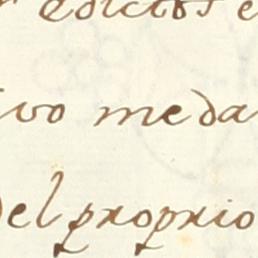 r edictos e
ivo meda
del proprio